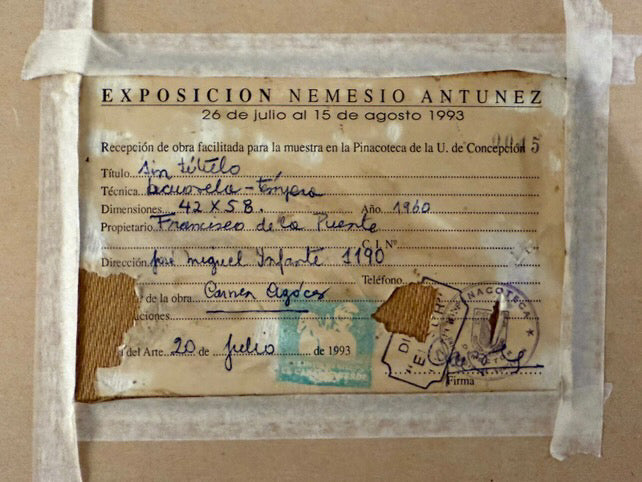 EXPOSICION NEMESIO ANTUNEZ
26 de julio al 15 de agosto 1993
Recepción de obra facilitada para la muestra en la Pinacoteca de la U. de Concepción
Título. Sin título
Técnica. acuarela - témpera
Dimensiones. 42 X 58. Año. 1960
Propietario. Francisco de la Puente
C.I. Nº
Dirección. José Miguel Infante 1190
Teléfono.
de la obra. Carmen
ciones:
del Arte. 20 de julio de 1993
PINACOTECA
Firma